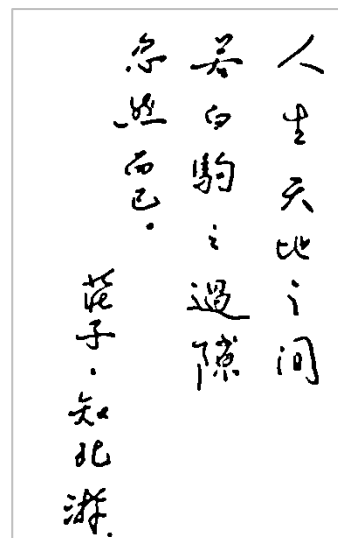 人生天地之间
若白驹之過隙
忽然而已.
莊子·知北游.